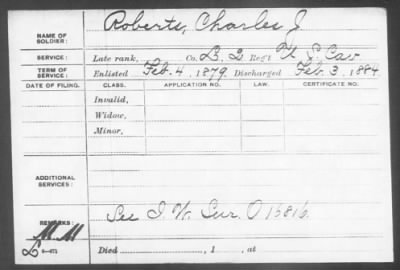 NAME OF SOLDIER: Roberts, Charles J.
SERVICE: Late rank, Co. L. 2 Reg't U. S. Cav
TERM OF SERVICE: Enlisted Feb. 4, 1879, Discharged Feb. 3, 1884
DATE OF FILING. CLASS. APPLICATION NO. LAW. CERTIFICATE NO.
Invalid,
Widow,
Minor,
ADDITIONAL SERVICES:
REMARKS: See I. W. Sur. O 16816.
M.M
Died , 1 , at